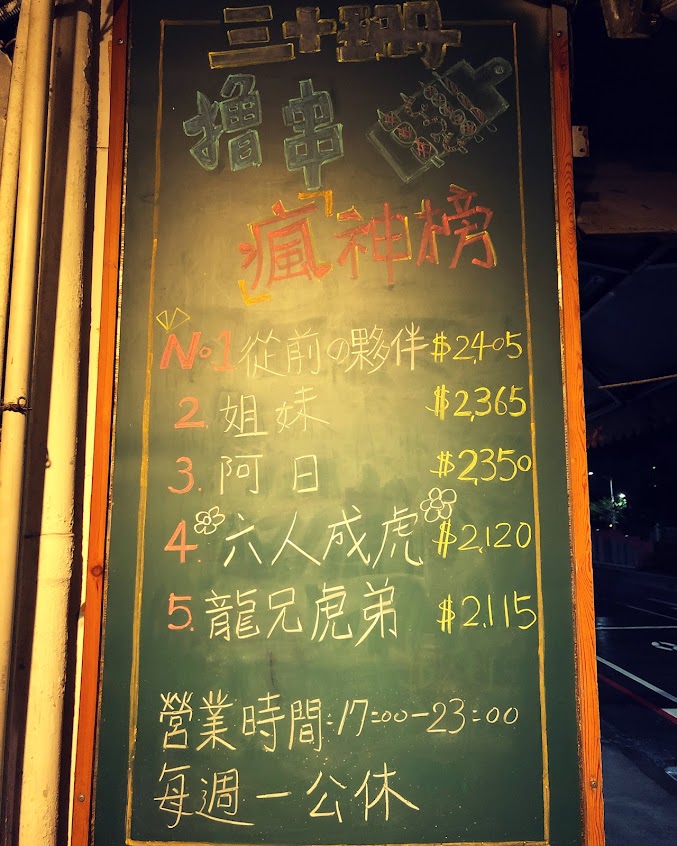 三十蹄
撸串
「瘋神榜
No.1 從前の夥伴 $2,405
2. 姐妹 $2,365
3. 阿日 $2,350
4. 六人成虎 $2,120
5. 龍兄虎弟 $2,115
營業時間:17:00-23:00
每週一公休